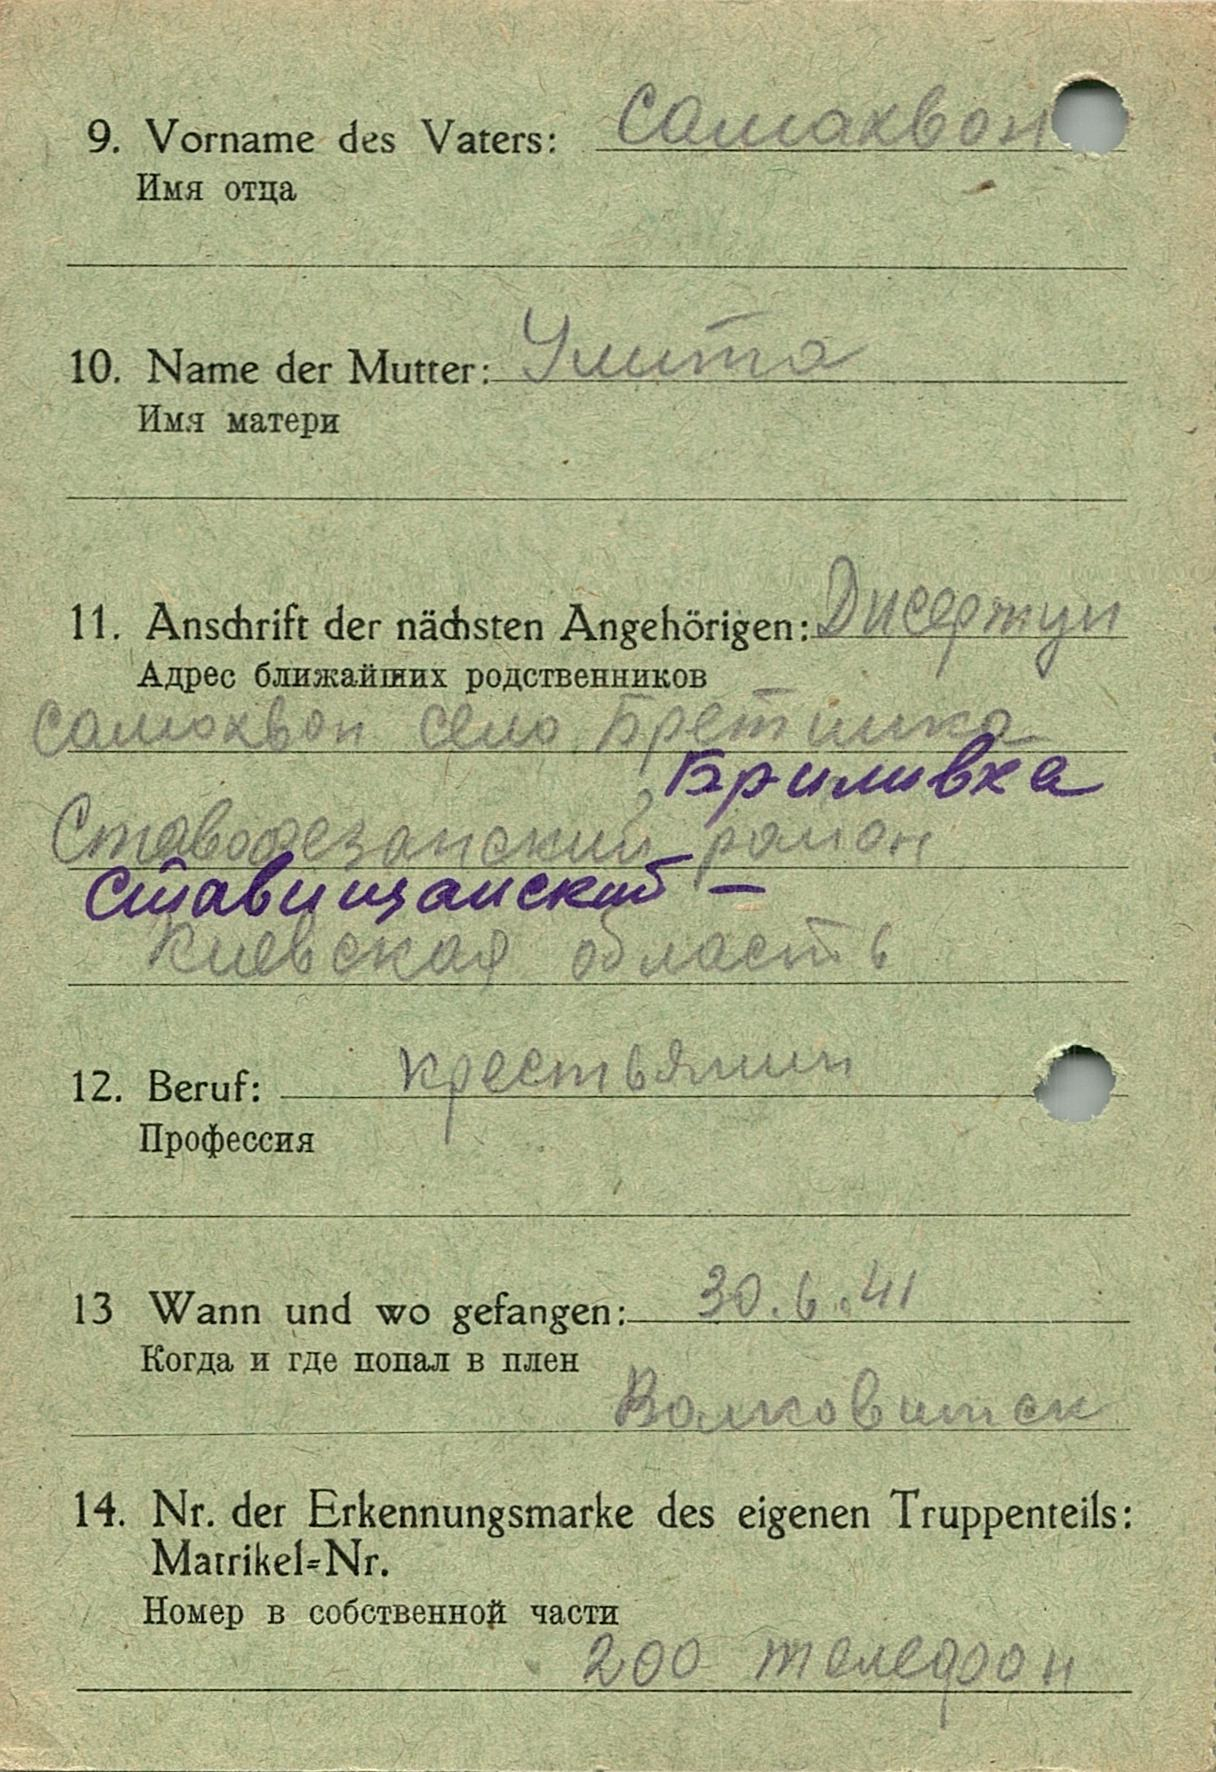 9. Vorname des Vaters: Самохвон
Имя отца
10. Name der Mutter: Улита
Имя матери
11. Anschrift der nächsten Angehörigen:
Адрес ближайших родственников
Самохвон село
Бриливка
район
Ставищанский —
Киевская область
12. Beruf: крестьянин
Профессия
13 Wann und wo gefangen: 30.6.41
Когда и где попал в плен
Волковитск
14. Nr. der Erkennungsmarke des eigenen Truppenteils:
Matrikel=Nr.
Номер в собственной части
200 телефон